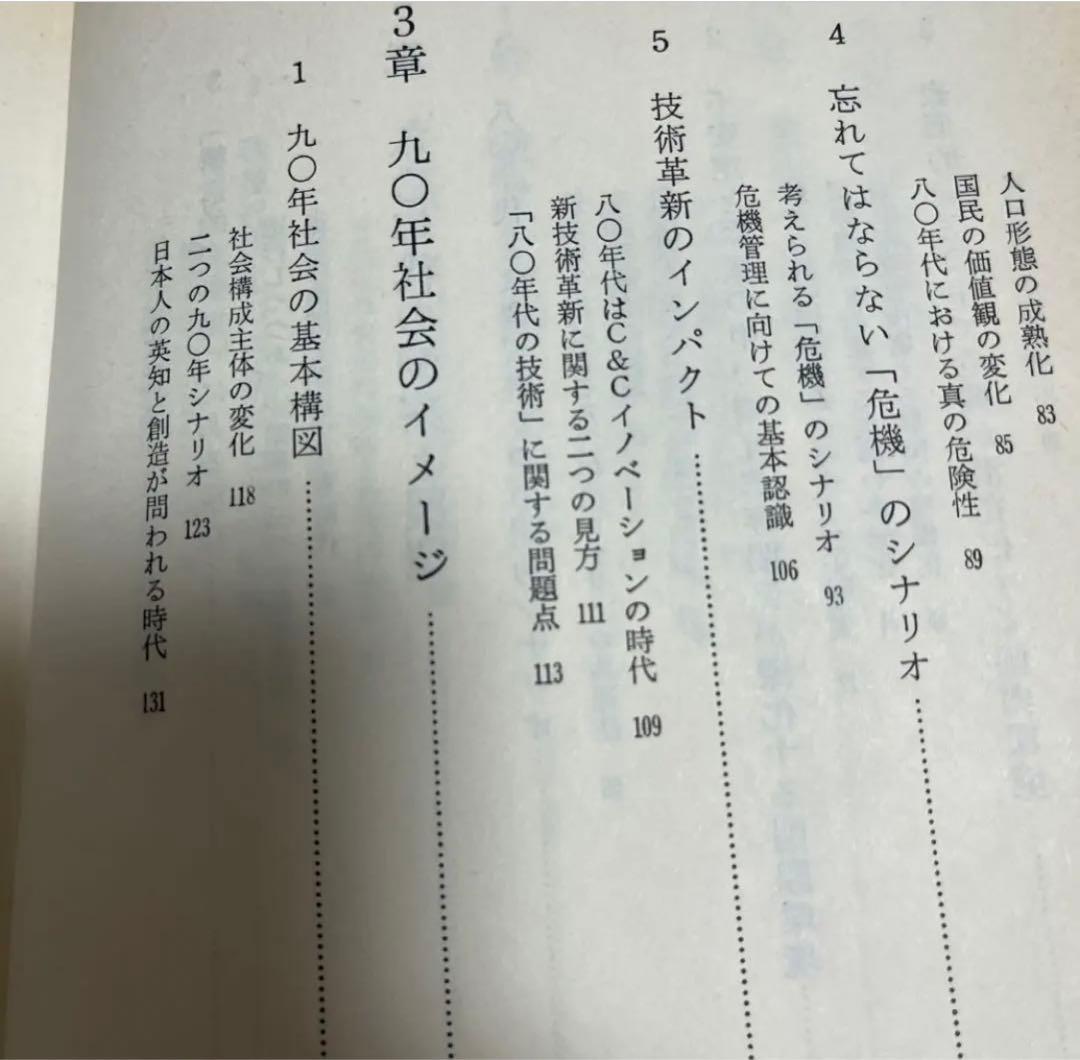 人口形態の成熟化 83
国民の価値観の変化 85
八〇年代における真の危険性 89
4 忘れてはならない「危機」のシナリオ
考えられる「危機」のシナリオ 93
危機管理に向けての基本認識 106
5 技術革新のインパクト
八〇年代はC&Cイノベーションの時代 109
新技術革新に関する二つの見方 111
「八〇年代の技術」に関する問題点 113
3章 九〇年社会のイメージ
1 九〇年社会の基本構図
社会構成主体の変化 118
二つの九〇年シナリオ 123
日本人の英知と創造が問われる時代 131